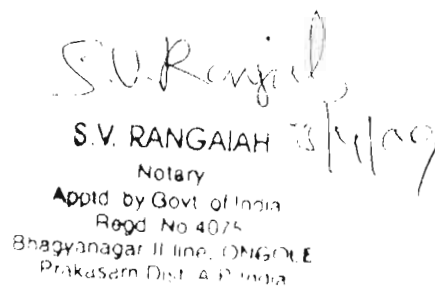 S.V. Rangaiah
S.V. RANGAIAH
Notary
Apptd by Govt of India
Regd No 4075
Bhagyanagar II line, ONGOLE
Prakasam Dist A.P. India